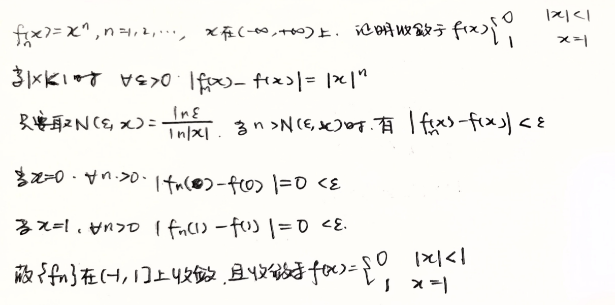 fₙ(x)=xⁿ, n=1,2,⋯, x在(-∞,+∞)上. 证明收敛于f(x){0 |x|<1 1 x=1
当|x|<1时 ∀ε>0 |fₙ(x)-f(x)|=|x|ⁿ
只要取N(ε,x)=lnε/ln|x|. 当n>N(ε,x)时.有 |fₙ(x)-f(x)|<ε
当x=0. ∀n>0. |fₙ(0)-f(0)|=0<ε
当x=1. ∀n>0 |fₙ(1)-f(1)|=0<ε.
故{fn}在(-1,1]上收敛.且收敛于f(x)={0 |x|<1 1 x=1